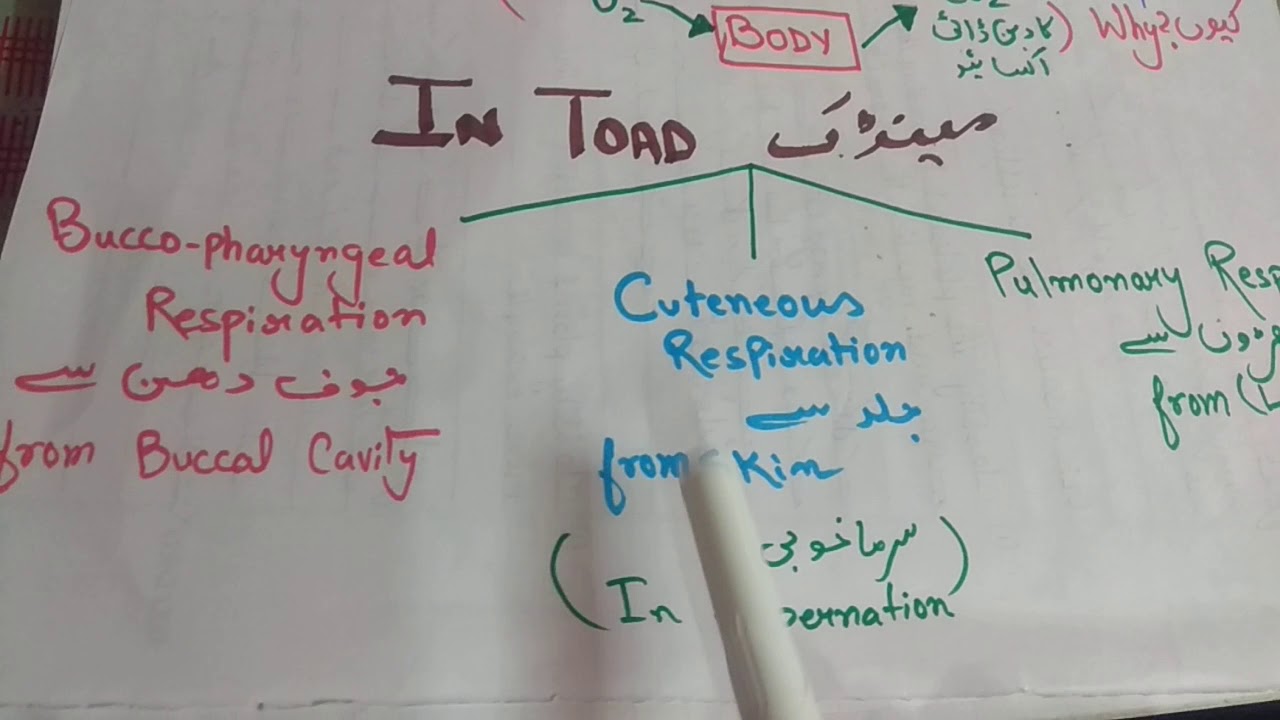 O2 BODY کاربن ڈائی ) Why? کیوں؟
آکسائیڈ
IN TOAD مینڈک
Bucco-pharyngeal
Respiration
جوف دھن سے
from Buccal Cavity
Cuteneous
Respiration
جلد سے
from Skin
( سرما خوبی )
( In
Pulmonary Resp
سے
from (L